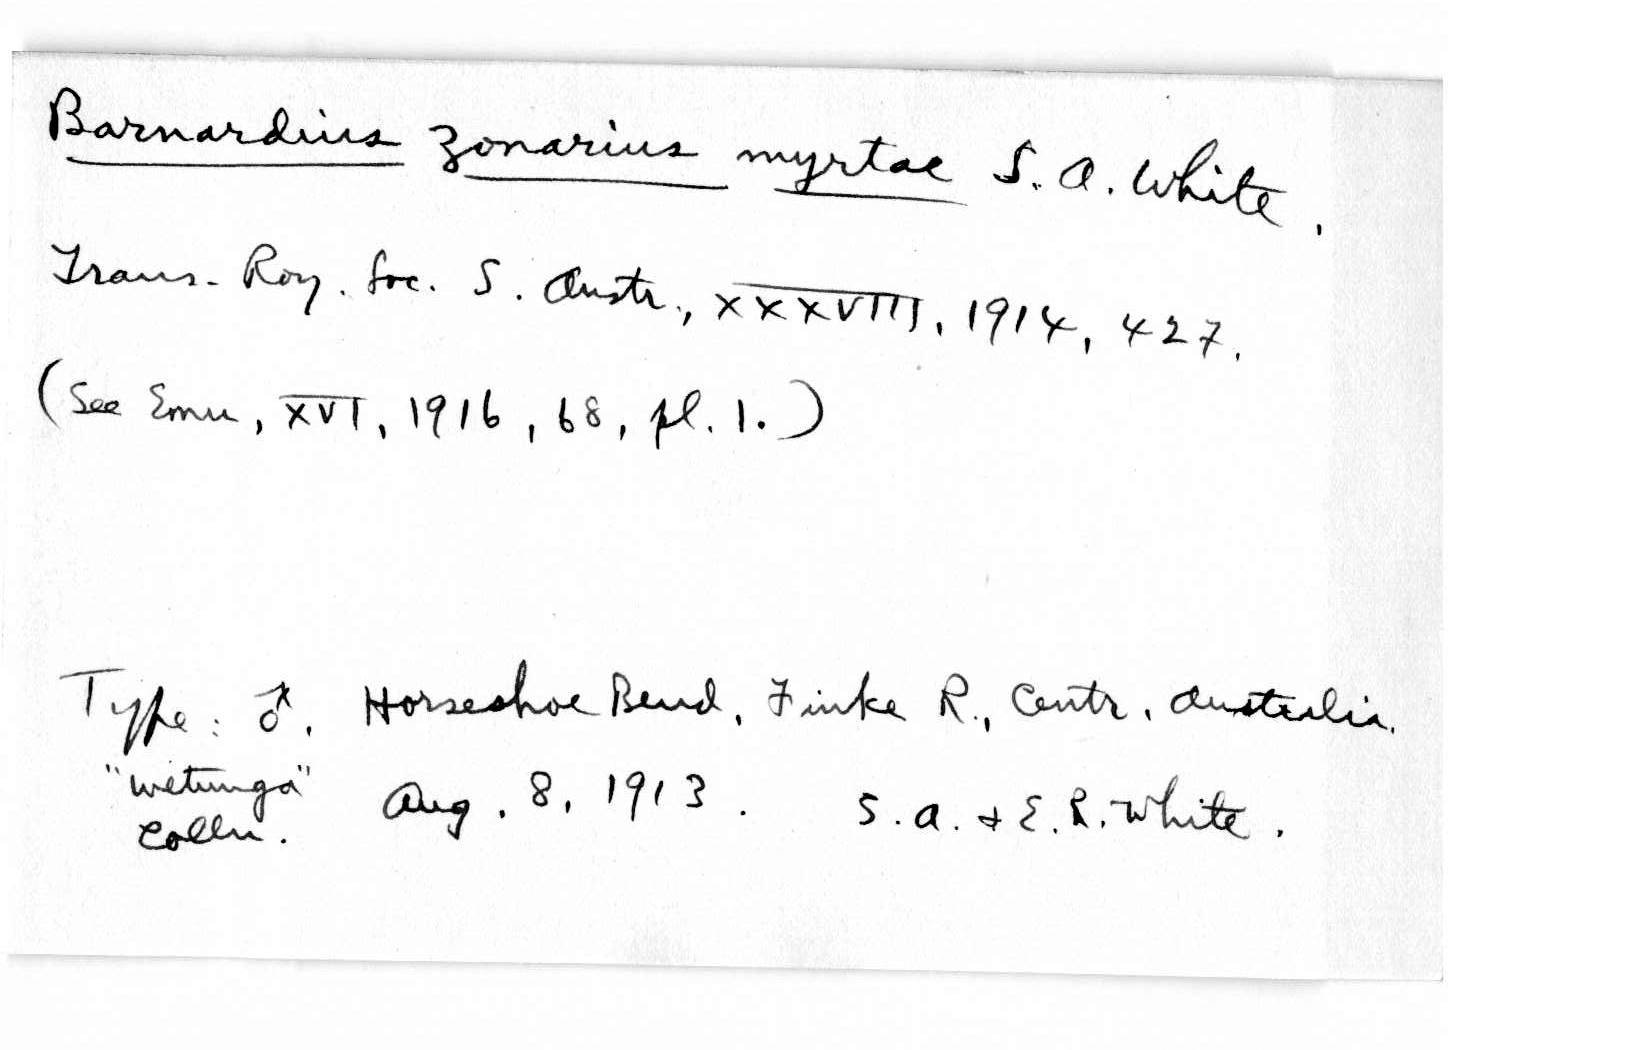 Barnardius zonarius myrtae S. A. White,
Trans. Roy. Soc. S. Austr., XXXVIII, 1914, 427.
(See Emu, XVI, 1916, 68, pl. 1.)
Type: ♂, Horseshoe Bend, Finke R., Centr. Australia.
"Wetunga" Aug. 8, 1913. S. A. + E. R. White.
Colln.